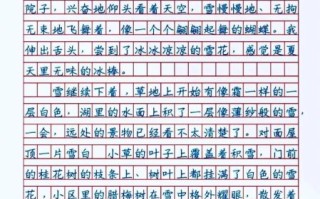 院子，兴奋地仰头看着天空，雪慢慢地、无拘
无束地飞舞着，像一个个翩翩起舞的蝴蝶。我
伸出舌头，尝到了冰冰凉凉的雪花，感觉是夏
天里无味的冰棒。
雪继续下着，草地上开始有像霜一样的一
层白色，湖里的水面上积了一层像薄纱般的雪，
一会，远处的景物已经看不太清楚了。对面屋
顶一片雪白，小草的叶子上覆盖着积雪，门前
的桂花树的枝条上、树干上都挂满了白色的雪
花，小区里的腊梅树在雪中格外耀眼，散发着